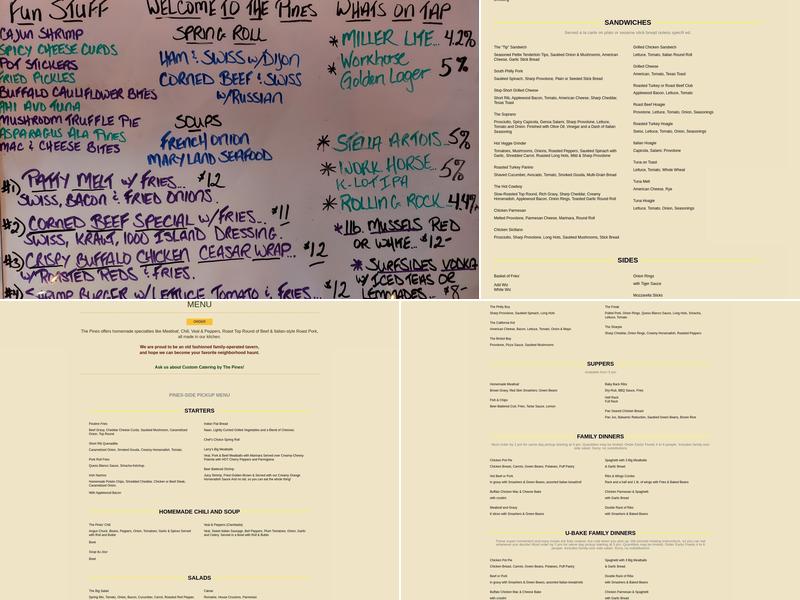 FUN STUFF
CAJUN SHRIMP
SPICY CHEESE CURDS
POT STICKERS
FRIED PICKLES
BUFFALO CAULIFLOWER BITES
AHI AVO TUNA
MUSHROOM TRUFFLE PIE
ASPARAGUS ALA PINES
MAC & CHEESE BITES
WELCOME TO THE PINES
SPRING ROLL
HAM & SWISS w/DIJON
CORNED BEEF & SWISS
w/RUSSIAN
SOUPS
FRENCH ONION
MARYLAND SEAFOOD
WHATS ON TAP
* MILLER LITE... 4.2%
* Workhorse
Golden Lager 5%
* STELLA ARTOIS... 5%
* WORK HORSE... 5%
K-LOT IPA
* ROLLING ROCK... 4.4%
* 1lb. MUSSELS RED
OR WHITE... $12-
* SURFSIDES VODKA
w/ ICED TEAS OR
LEMMADES... $8-
#1) PATTY MELT w/ FRIES... $12
SWISS, BACON & FRIED ONIONS.
#2) CORNED BEEF SPECIAL w/FRIES... $11
SWISS, KRAUT, 1000 ISLAND DRESSING.
#3) CRISPY BUFFALO CHICKEN CEASAR WRAP... $12
w/ROASTED REDS & FRIES.
#4) SHRIMP BURGER w/LETTUCE TOMATO & FRIES... $12
SANDWICHES
Served a la carte on plato or sesame stick bread unless specified.
The "Tip" Sandwich
Seasoned Petite Tenderloin Tips, Sautéed Onion & Mushroom, American Cheese, Garlic Stick Bread
South Philly Pork
Sautéed Spinach, Sharp Provolone, Plain or Seeded Stick Bread
Stop-Short Grilled Cheese
Short Rib, Applewood Bacon, Tomato, American Cheese, Sharp Cheddar, Texas Toast
The Soprano
Prosciutto, Spicy Capicola, Genoa Salami, Sharp Provolone, Lettuce, Tomato and Onion. Finished with Olive Oil, Vinegar and a Dash of Italian Seasoning
Hot Veggie Grinder
Tomatoes, Mushrooms, Onions, Roasted Peppers, Sautéed Spinach with Garlic, Shredded Carrot, Roasted Long Hots, Mild & Sharp Provolone
Roasted Turkey Panino
Shaved Cucumber, Avocado, Tomato, Smoked Gouda, Multi-Grain Bread
The Hot Cowboy
Slow-Roasted Top Round, Rich Gravy, Sharp Cheddar, Creamy Horseradish, Applewood Bacon, Onion Rings, Toasted Garlic Round Roll
Chicken Parmesan
Melted Provolone, Parmesan Cheese, Marinara, Round Roll
Chicken Siciliano
Prosciutto, Sharp Provolone, Long Hots, Sautéed Mushrooms, Stick Bread
Grilled Chicken Sandwich
Lettuce, Tomato, Italian Round Roll
Grilled Cheese
American, Tomato, Texas Toast
Roasted Turkey or Roast Beef Club
Applewood Bacon, Lettuce, Tomato
Roast Beef Hoagie
Provolone, Lettuce, Tomato, Onion, Seasonings
Roasted Turkey Hoagie
Swiss, Lettuce, Tomato, Onion, Seasonings
Italian Hoagie
Capicola, Salami, Provolone
Tuna on Toast
Lettuce, Tomato, Whole Wheat
Tuna Melt
American Cheese, Rye
Tuna Hoagie
Lettuce, Tomato, Onion, Seasonings
SIDES
Basket of Fries
Add Wiz
White Wiz
Onion Rings
with Tiger Sauce
Mozzarella Sticks
MENU
ORDER
The Pines offers homemade specialties like Meatloaf, Chili, Veal & Peppers, Roast Top Round of Beef & Italian-style Roast Pork,
all made in our kitchen.
We are proud to be an old fashioned family-operated tavern,
and hope we can become your favorite neighborhood haunt.
Ask us about Custom Catering by The Pines!
PINES-SIDE PICKUP MENU
STARTERS
Poutine Fries
Beef Gravy, Cheddar Cheese Curds, Sautéed Mushroom, Caramelized Onion, Top Round
Short Rib Quesadilla
Caramelized Onion, Smoked Gouda, Creamy Horseradish, Tomato,
Pork Roll Fries
Queso Blanco Sauce, Sriracha-Ketchup
Irish Nachos
Homemade Potato Chips, Shredded Cheddar, Chicken or Beef Steak, Caramelized Onion.
With Applewood Bacon
Italian Flat Bread
Chef's Choice Spring Roll
Larry's Big Meatballs
Beer Battered Shrimp
HOMEMADE CHILI AND SOUP
The Pines' Chili
Angus Chuck, Beans, Peppers, Onion, Tomatoes, Garlic & Spices Served with Roll and Butter
Bowl
Soup du Jour
Bowl
Veal & Peppers (Ciambotta)
Veal, Sweet Italian Sausage, Bell Peppers, Plum Tomatoes, Onion, Garlic and Celery. Served in a Bowl with Roll & Butter
SALADS
The Big Salad
Spring Mix, Tomato, Onion, Bacon, Cucumber, Carrot, Roasted Red Pepper,
Caesar
Romaine, House Croutons, Parmesan
The Philly Boy
Sharp Provolone, Sautéed Spinach, Long Hots
The California Kid
American Cheese, Bacon, Lettuce, Tomato, Onion & Mayo
The Bristol Boy
Provolone, Pizza Sauce, Sautéed Mushrooms
The Freak
Pulled Pork, Onion Rings, Queso Blanco Sauce, Long Hots, Sriracha, Lettuce, Tomato
The Sharpie
Sharp Cheddar, Onion Rings, Creamy Horseradish, Roasted Peppers
SUPPERS
Available from 3 pm
Homemade Meatloaf
Brown Gravy, Red Skin Smashers, Green Beans
Fish & Chips
Beer-Battered Cod, Fries, Tartar Sauce, Lemon
Baby Back Ribs
Dry-Rub, BBQ Sauce, Fries
Half Rack
Full Rack
Pan Seared Chicken Breast
Pan Jus, Balsamic Reduction, Sautéed Green Beans, Brown Rice
FAMILY DINNERS
Chicken Pot Pie
Chicken Breast, Carrots, Green Beans, Potatoes, Puff Pastry
Hot Beef or Pork
in gravy with Smashers & Green Beans, assorted Italian breadroll
Buffalo Chicken Mac & Cheese Bake
with crostini
Meatloaf and Gravy
6 slices with Smashers & Green Beans
Spaghetti with 3 Big Meatballs
& Garlic Bread
Ribs & Wings Combo
Rack and a half and 1 lb. of wings with Fries & Baked Beans
Chicken Parmesan & Spaghetti
with Garlic Bread
Double Rack of Ribs
with Smashers & Baked Beans
U-BAKE FAMILY DINNERS
Chicken Pot Pie
Chicken Breast, Carrots, Green Beans, Potatoes, Puff Pastry
Beef or Pork
in gravy with Smashers & Green Beans, assorted Italian breadrolls
Buffalo Chicken Mac & Cheese Bake
with crostini
Spaghetti with 3 Big Meatballs
& Garlic Bread
Double Rack of Ribs
with Smashers & Baked Beans
Chicken Parmesan & Spaghetti
with Garlic Bread